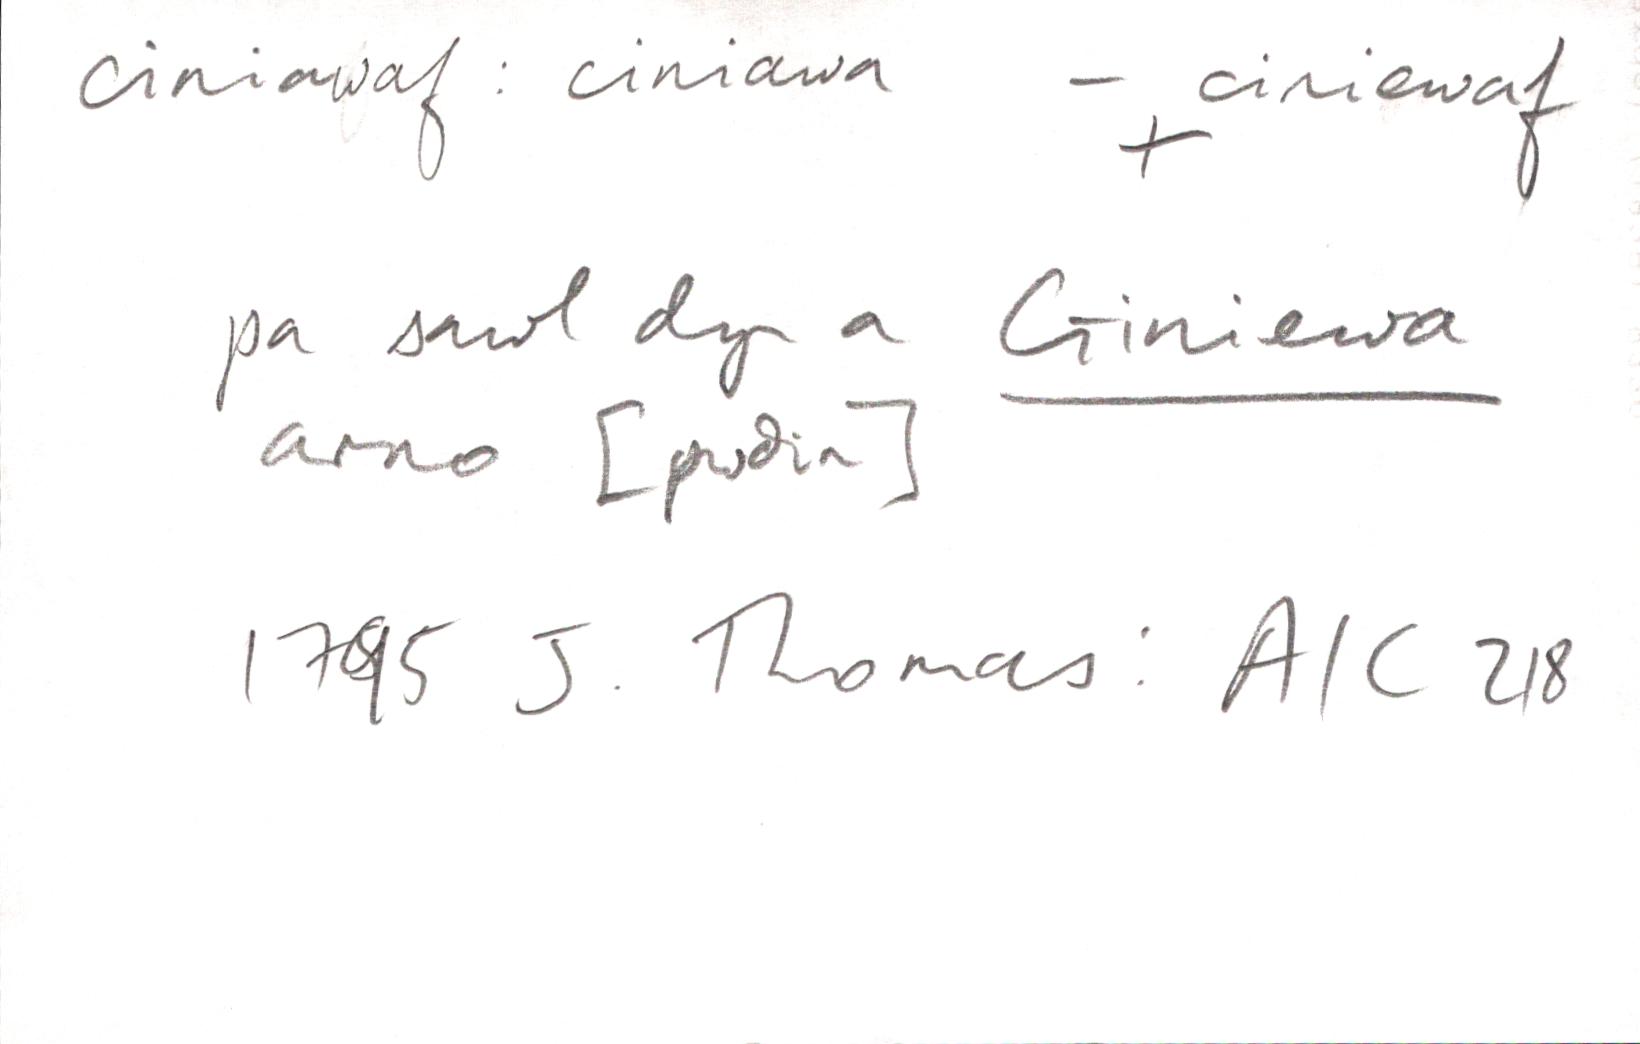 ciniawaf : ciniawa – + ciniewaf
pa sawl dyn a Giniewa
arno [pwdin]
1795 J. Thomas: AIC 218